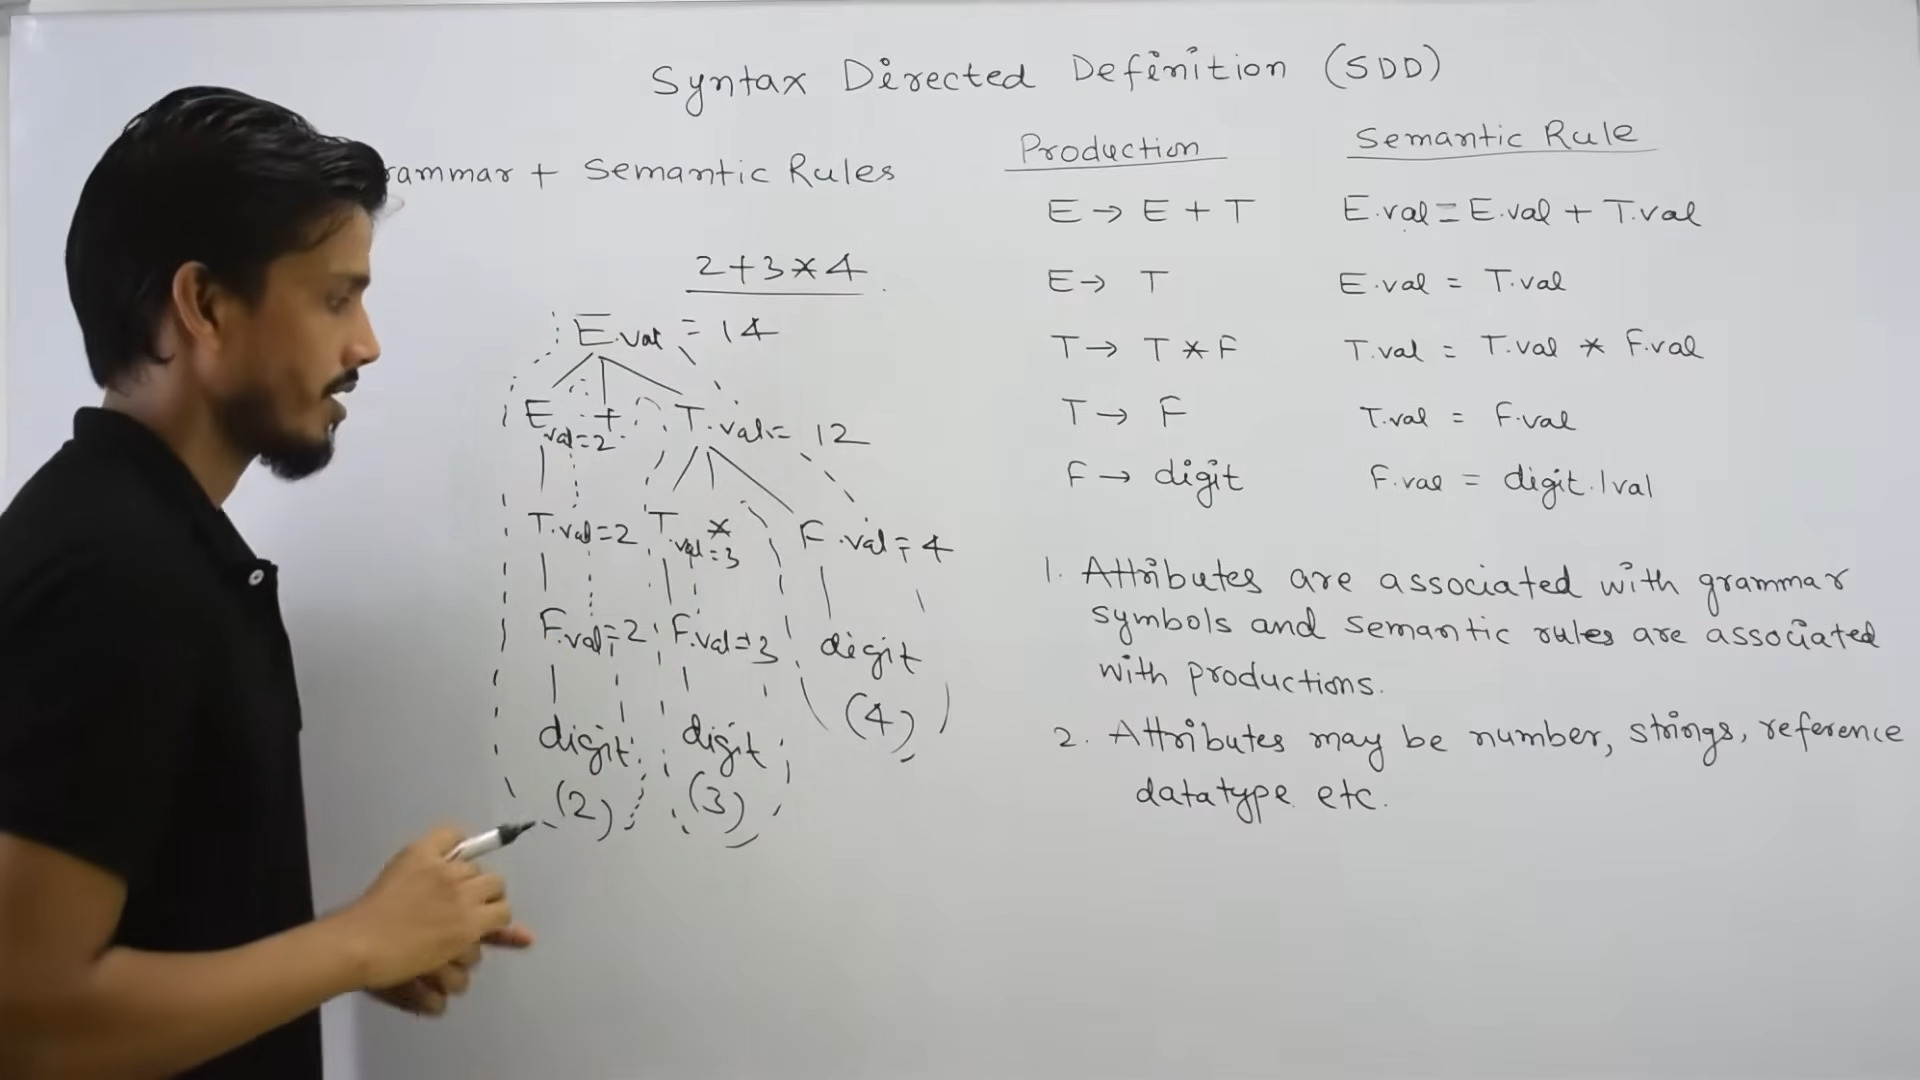 Syntax Directed Definition (SDD)
rammar + Semantic Rules
2+3*4
E.val = 14
E + T.val = 12
val=2
T.val=2 T * F.val=4
.val=3
F.val=2 F.val=3 digit
(4)
digit digit
(2) (3)
Production Semantic Rule
E → E + T E.val = E.val + T.val
E → T E.val = T.val
T → T * F T.val = T.val * F.val
T → F T.val = F.val
F → digit F.val = digit.lval
1. Attributes are associated with grammar
symbols and semantic rules are associated
with productions.
2. Attributes may be number, strings, reference
datatype etc.